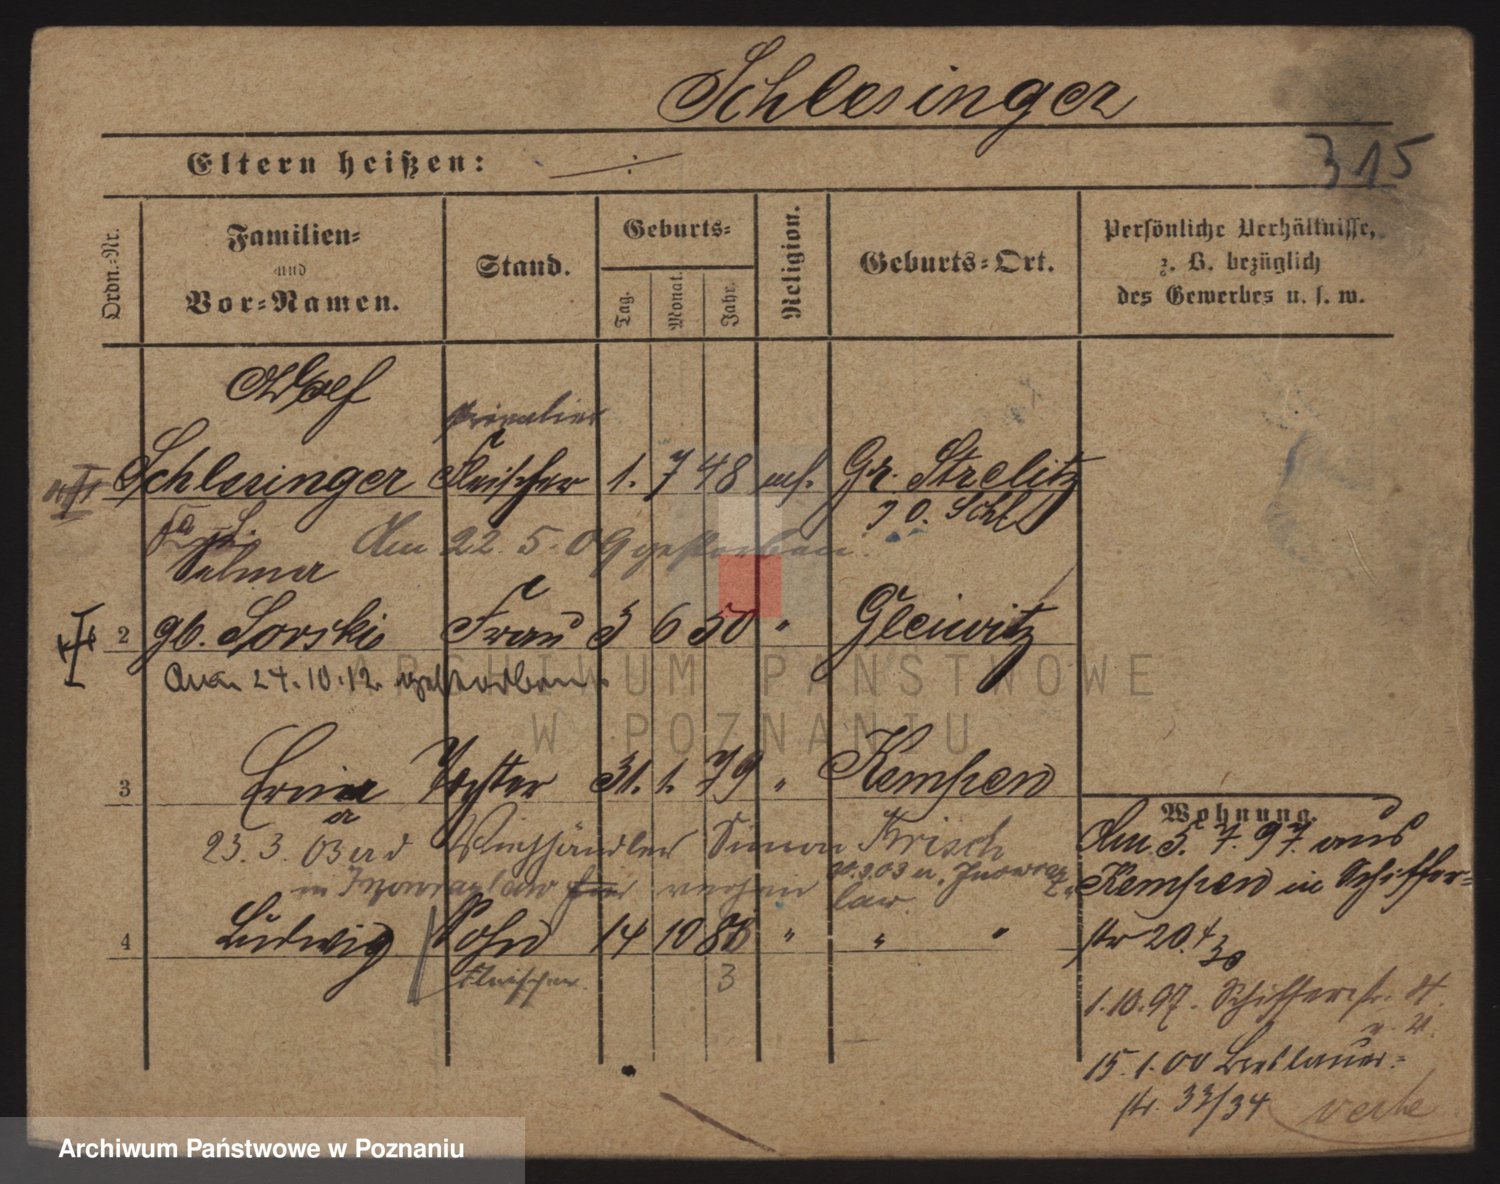 Schlesinger
315
Eltern heißen: ·/·
Ordn.-Nr.
Familien-
und
Vor-Namen.
Stand.
Geburts-
Tag.
Monat.
Jahr.
Religion.
Geburts-Ort.
Persönliche Verhältnisse,
z. B. bezüglich
des Gewerbes u. s. w.
Adolf
Privatier
Schlesinger Fleischer 1. 7 48 mos. Gr. Strelitz
O. Schl
Am 22. 5. 09 gestorben.
Selma
2 gb. Sorski Frau 3 6 50 " Gleiwitz
Am 24.10.12. gestorben.
3 Erna Tochter 31. 1. 79 " Kempen
Wohnung.
23. 3. 03 Viehhändler Simon Krisch
in Inowrazlaw
4 Ludwig Sohn 14 10 " " "
Fleischer. 3
Am 5. 7. 97 aus
Kempen in Schiffer-
str 20.
1.10.97. Schifferstr.
15.1.00 Breslauer-
str. 33/34
ARCHIWUM PAŃSTWOWE
W POZNANIU
Archiwum Państwowe w Poznaniu